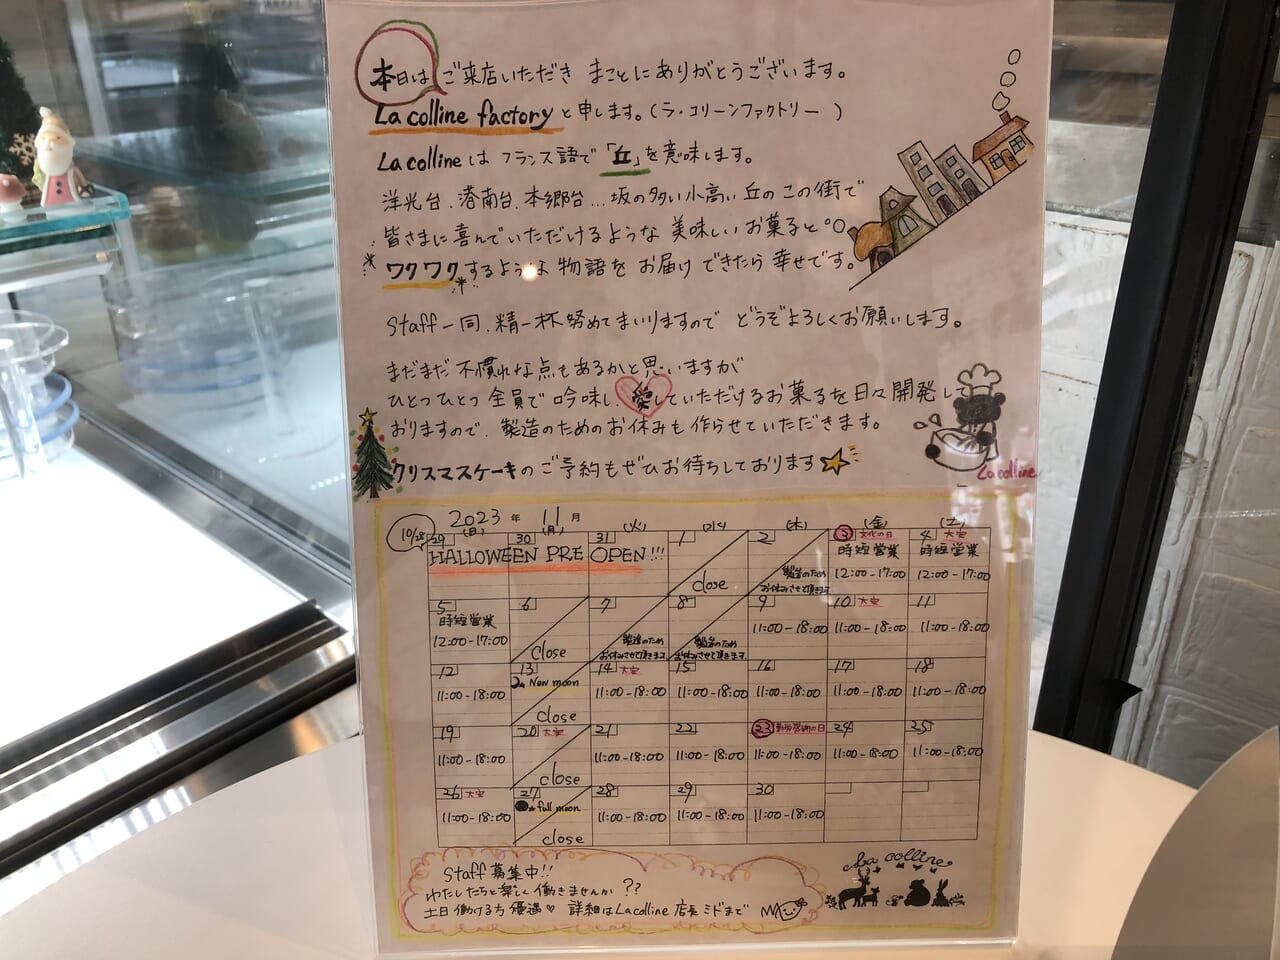 本日は ご来店いただき まことにありがとうございます。
La colline factory と申します。(ラ・コリーンファクトリー )
La colline は フランス語で「丘」を意味します。
洋光台、港南台、本郷台...坂の多い小高い丘のこの街で
皆さまに喜んでいただけるような 美味しいお菓子と
ワクワクするような 物語を お届けできたら 幸せです。
Staff一同、精一杯努めてまいりますので どうぞよろしくお願いします。
まだまだ不慣れな点もあるかと思いますが
ひとつひとつ全員で吟味し、愛していただけるお菓子を日々開発して
おりますので、製造のためのお休みも作らせていただきます。
La colline
クリスマスケーキのご予約もぜひお待ちしております
2023年 11月
(日) (月) (火) (水) (木) (金) (土)
10/28 29 30 31 1 2 3 文化の日 4 大安
HALLOWEEN PRE OPEN!!!
close
製造のため
お休みさせて頂きます
時短営業 時短営業
12:00-17:00 12:00-17:00
5 6 7 8 9 10 大安 11
時短営業
12:00-17:00
close
製造のため
お休みさせて頂きます
製造のため
お休みさせて頂きます
11:00-18:00 11:00-18:00 11:00-18:00
12 13 14 大安 15 16 17 18
New moon
11:00-18:00 close 11:00-18:00 11:00-18:00 11:00-18:00 11:00-18:00 11:00-18:00
19 20 大安 21 22 23 勤労感謝の日 24 25
11:00-18:00 close 11:00-18:00 11:00-18:00 11:00-18:00 11:00-18:00 11:00-18:00
26 大安 27 28 29 30
full moon
11:00-18:00 close 11:00-18:00 11:00-18:00 11:00-18:00
Staff募集中!!
わたしたちと楽しく働きませんか??
土日働ける方優遇♡ 詳細はLa colline 店長ミドまで
La colline